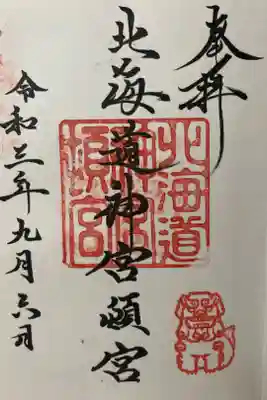 奉拝
北海道神宮頓宮
北海道神宮頓宮
令和三年九月六日